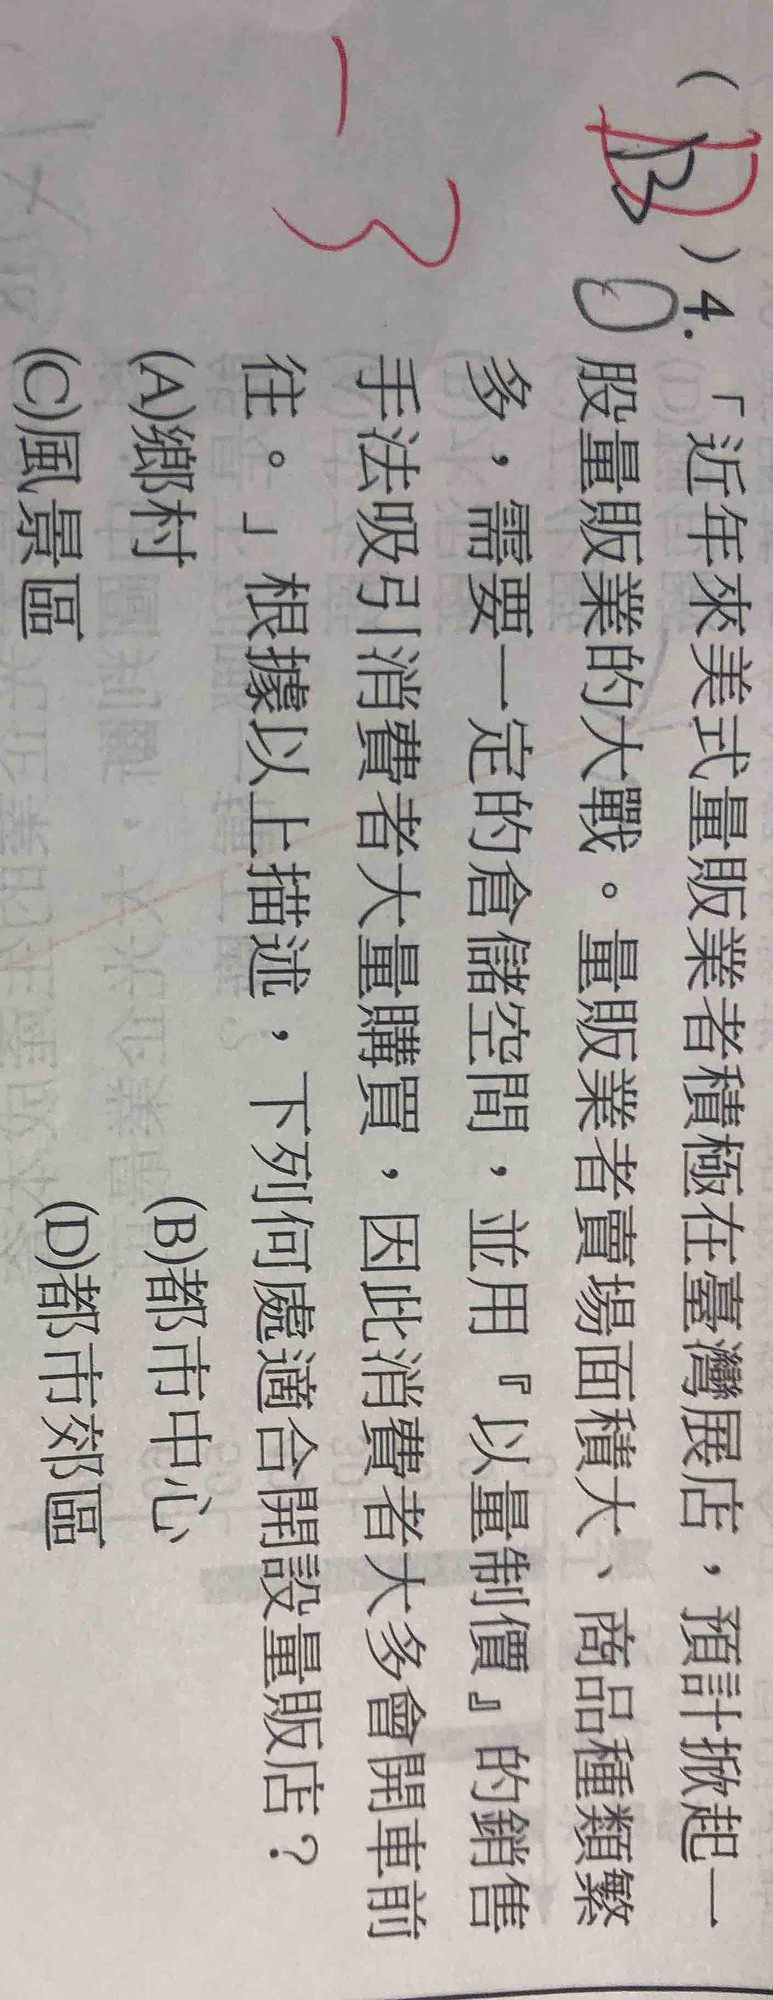 (B)4.「近年來美式量販業者積極在臺灣展店，預計掀起一
股量販業的大戰。量販業者賣場面積大、商品種類繁
多，需要一定的倉儲空間，並用『以量制價』的銷售
手法吸引消費者大量購買，因此消費者大多會開車前
往。」根據以上描述，下列何處適合開設量販店？
(A)鄉村 (B)都市中心
(C)風景區 (D)都市郊區
D
-3